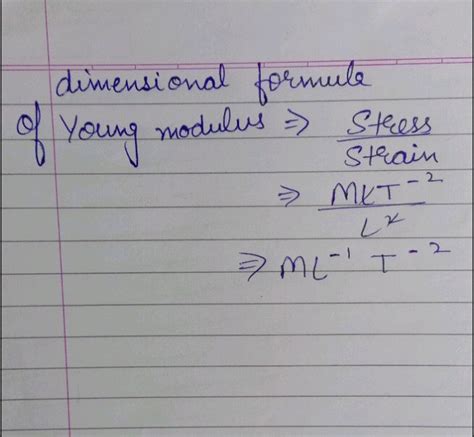 dimensional formule
of Young modulus ⇒ Stress
Strain
⇒ MLT⁻²
L²
⇒ ML⁻¹ T⁻²